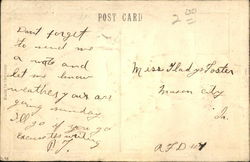 POST CARD
2.00
Dont forget
to send me
a note and
let me know
weather your are
going sunday
I'll go if you go
excuse writing
Miss Gladys Foster
Mason city
Ia.
R.F.D. #4